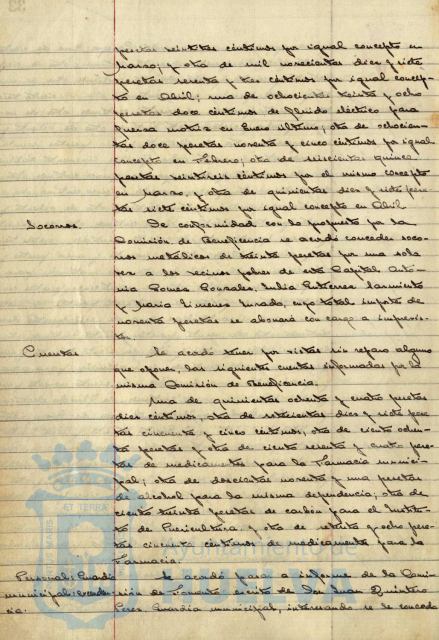 pesetas veintitres céntimos por igual concepto en
Marzo; y otra de mil novecientas diez y siete
pesetas sesenta y tres céntimos por igual concep-
to en Abril; una de ochocientas treinta y ocho
pesetas doce céntimos de flúido eléctrico para
fuerza motriz en Enero último; otra de ochocien-
tas doce pesetas noventa y cinco céntimos por igual
concepto en Febrero; otra de seiscientas quince
pesetas veintiseis céntimos por el mismo concepto
en Marzo, y otra de quinientas diez y siete pese-
tas siete céntimos por igual concepto en Abril.
Socorros. De conformidad con lo propuesto por la
Comisión de Beneficencia se acordó conceder soco-
rros metálicos de treinta pesetas por una sola
vez a los vecinos pobres de esta Capital Antó-
nia Gomez Gonzales, Julia Gutierrez Sarmiento
y Maria Jimenez Jurado, cuyo total importe de
noventa pesetas se abonará con cargo a imprevis-
tos.
Cuentas Se acordó tener por vistas sin reparo alguno
que oponer, las siguientes cuentas informadas por la
misma Comisión de Beneficencia.
Una de quinientas ochenta y cuatro pesetas
diez céntimos, otra de setecientas diez y siete pese-
tas cincuenta y cinco céntimos, otra de ciento ochen-
ta pesetas y otra de ciento sesenta y cuatro pese-
tas de medicamentos para la Farmacia munici-
pal; otra de doscientas noventa y una pesetas
de alcohol para la misma dependencia; otra de
ciento treinta pesetas de carbón para el Institu-
to de Puericultura, y otra de setenta y ocho pese-
tas cincuenta céntimos de medicamentos para la
Farmacia.
Personal: Guardia Se acordó pase a informe de la Comi-
municipal: exceden- sión de Fomento, escrito de Don Juan Quintero
cia. Perez, Guardia municipal, interesando se le conceda
Ayuntamiento de
HUELVA